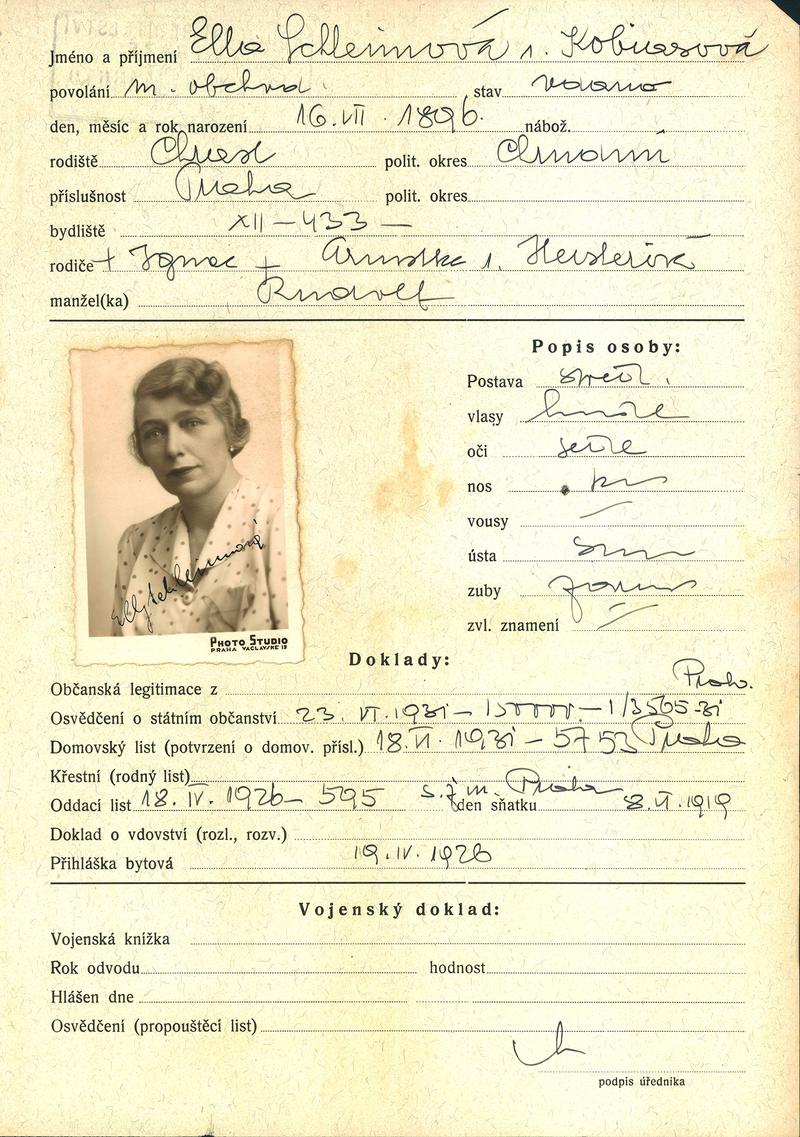 Jméno a příjmení Ella Schleimová r. Kobinasová
povolání m. obchod. stav vdaná
den, měsíc a rok narození 16. VII. 1896. nábož.
rodiště Chrast polit. okres Chrudim
příslušnost Praha polit. okres
bydliště XII – 433 –
rodiče + Ignac + r.
manžel(ka) Rudolf
Popis osoby:
Postava střed.
vlasy hnědé
oči šedé
nos
vousy –
ústa
zuby
zvl. znamení
Elly Schleimová
PHOTO STUDIO
PRAHA VÁCLAVSKÉ 19
Doklady:
Občanská legitimace z
Osvědčení o státním občanství 23. VI. 1931 –
Domovský list (potvrzení o domov. přísl.) 18. VI. 1931 – 5753 Praha
Křestní (rodný list)
Oddací list 18. IV. 1926 – 595 Praha den sňatku 8. VI. 1919
Doklad o vdovství (rozl., rozv.)
Přihláška bytová 19. IV. 1926
Vojenský doklad:
Vojenská knížka
Rok odvodu hodnost
Hlášen dne
Osvědčení (propouštěcí list)
podpis úředníka